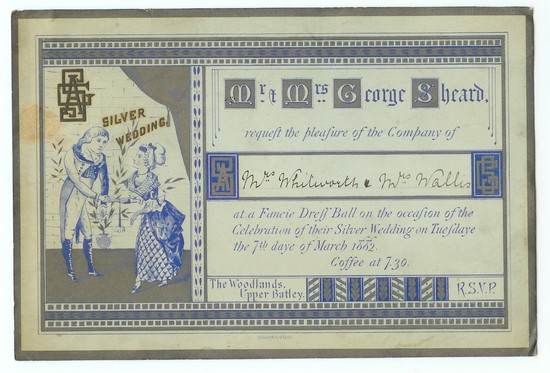 SILVER
WEDDING!
Mr. & Mrs George Sheard,
request the pleasure of the Company of
Mrs Whitworth & Mrs Wallis
at a Fancie Dress Ball on the occasion of the
Celebration of their Silver Wedding on Tuesdaye
the 7th daye of March 1882.
Coffee at 7.30.
The Woodlands.
Upper Batley.
R.S.V.P.